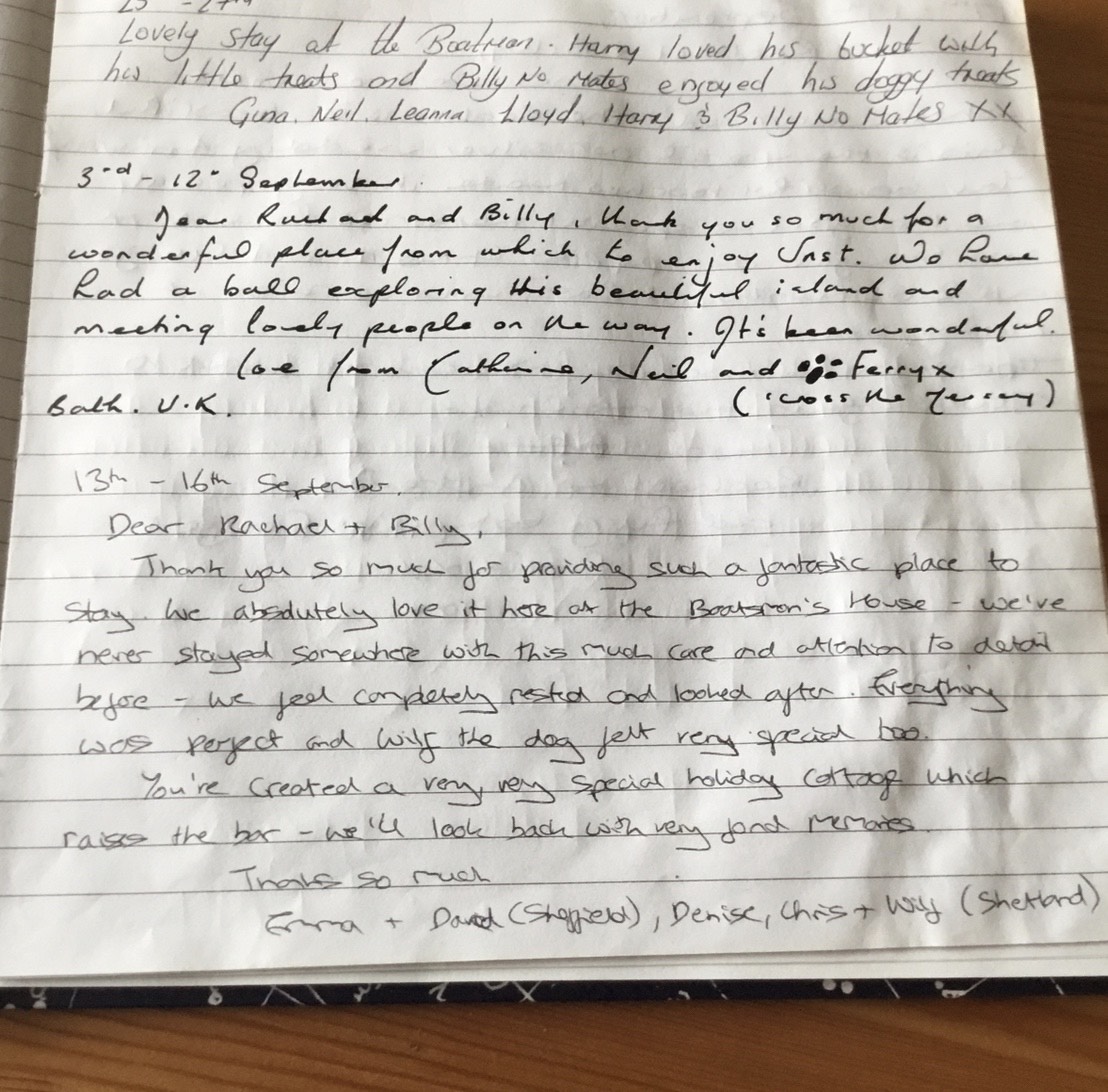 Lovely stay at the Boatman. Harry loved his bucket with
his little treats and Billy No Mates enjoyed his doggy treats
Gina. Neil. Leanna Lloyd. Harry & Billy No Mates XX
3rd - 12th September.
Dear Rachael and Billy, thank you so much for a
wonderful place from which to enjoy Unst. We have
had a ball exploring this beautiful island and
meeting lovely people on the way. It's been wonderful.
love from Catherine, Neil and Ferry x
Bath. U.K.
(across the
13th - 16th September.
Dear Rachael + Billy,
Thank you so much for providing such a fantastic place to
stay. We absolutely love it here at the Boatsman's House - we've
never stayed somewhere with this much care and attention to detail
before - we feel completely rested and looked after. Everything
was perfect and Wilf the dog felt very special too.
You've created a very, very special holiday cottage which
raises the bar - we'll look back with very fond memories.
Thanks so much
Emma + David (Sheffield), Denise, Chris + Wilf (Shetland)